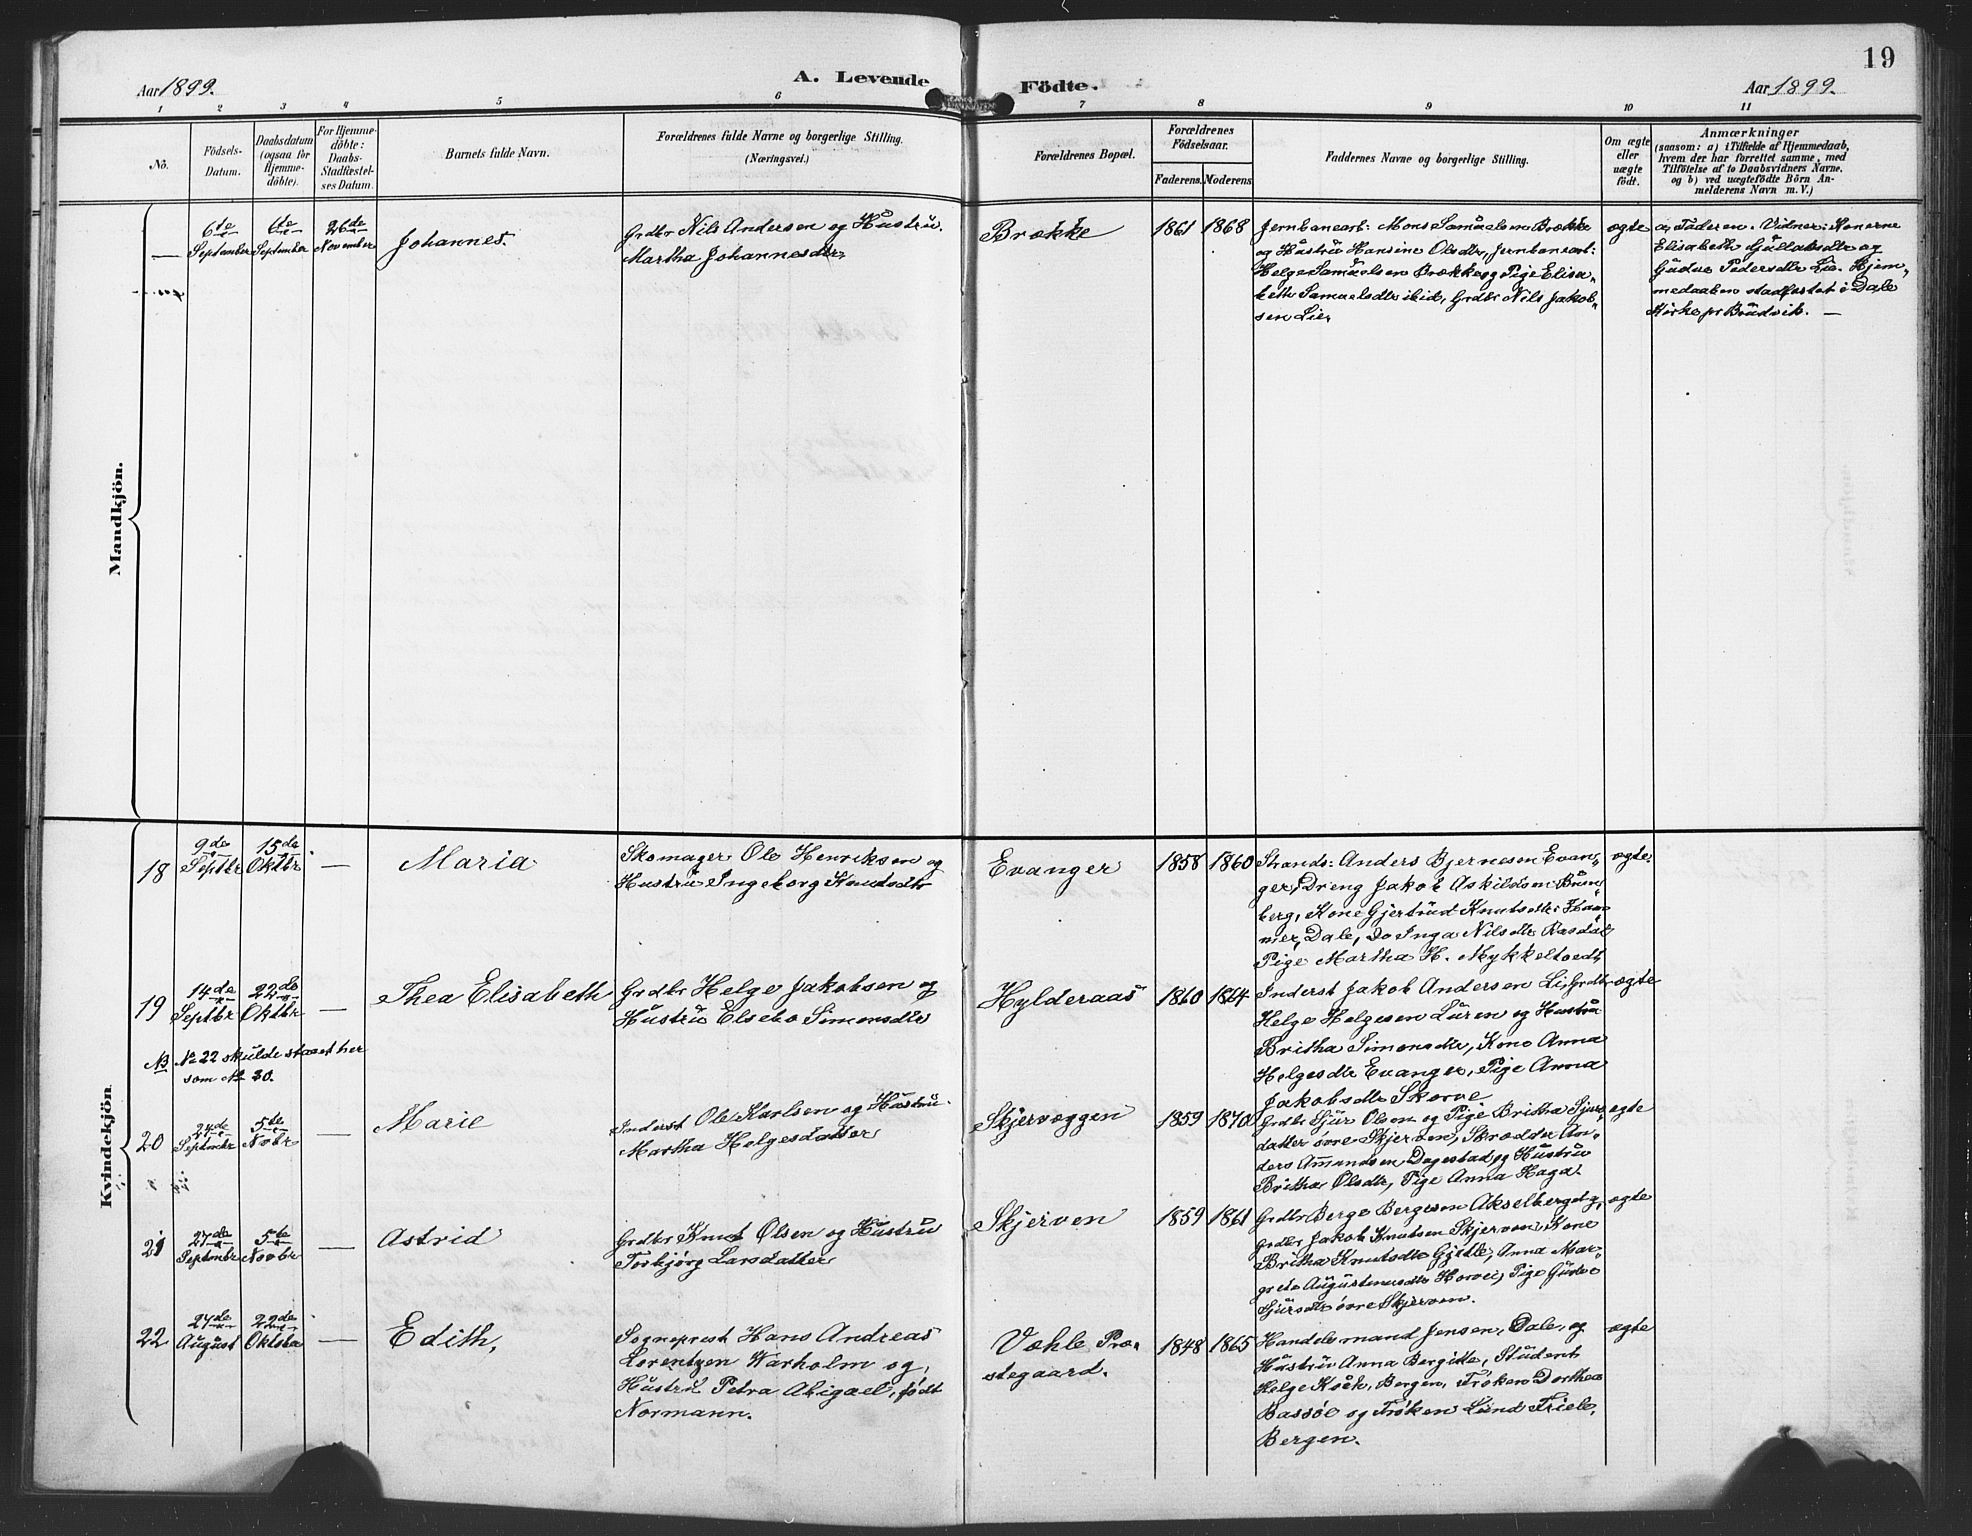 19
Aar 1899.
A. Levende Födte.
Aar 1899.
1 2 3 4 5 6 7 8 9 10 11
Nö.
Födsels-Datum.
Daabsdatum (ogsaa for Hjemme-döbte).
For Hjemme-döbte: Daabs-Stadfæstel-ses Datum.
Barnets fulde Navn.
Forældrenes fulde Navne og borgerlige Stilling. (Næringsvei.)
Forældrenes Bopæl.
Forældrenes Födselsaar.
Faderens. Moderens
Faddernes Navne og borgerlige Stilling.
Om ægte eller uægte födt.
Anmærkninger
(saasom: a) i Tilfælde af Hjemmedaab,
hvem der har forrettet samme, med
Tilföielse af to Daabsvidners Navne,
og b) ved uægtefödte Börn An-
melderens Navn m. V.)
Mandkjön.
—
6te September
6te September
26de November
Johannes.
Grdbr Nils Andersen og Hustru
Martha Johannesdtr,
Brække
1861 1868
Jernbanearb: Mons Samuelsen Brække
og Hustru Hansine Olsdtr, Jernbanearb:
Helge Samuelsen Brække og Pige Elisa-
beth Samuelsdtr ibid, Grdbr Nils Jakob-
sen Lie,
ægte
a, Faderen. Vidner: Konerne
Elisabeth Gullaksdtr og
Gudve Pedersdtr Lie. Hjem-
medaaben stadfæstet i Dale
Kirke pr Bruvik. —
Kvindekjön
18
9de Septbr
15de Oktbr.
—
Maria
Skomager Ole Henriksen og
Hustru Ingeborg Knutsdtr
Evanger
1858 1860
Strands: Anders Bjernesen Evan-
ger, Dreng Jakob Askildsen Bum-
berg, Kone Gjertrud Knutsdtr Ham-
mer, Dale, Do Inga Nilsdtr Rasdal
Pige Martha H. Mykkeltvedt,
ægte
19
14de Septbr
22de Oktbr
—
Thea Elisabeth
Grdbr Helge Jakobsen og
Hustru Elsebe Simonsdtr
Hylderaas
1860 1864
Inderst Jakob Andersen Li, Grdbr
Helge Helgesen Luren og Hustru
Britha Simonsdtr, Kone Anna
Helgesdtr Evanger, Pige Anna
Jakobsdtr Skorve
ægte
NB No 22 skulde staaet her
som No 20.
20
24de September
5te Novbr
—
Marie
Inderst Ole Karlsen og Hustru
Martha Helgesdatter
Skjervæggen
1859 1870
Grdbr Sjur Olsen og Pige Britha Sjurs-
datter øvre Skjerven, Skrædder An-
ders Amundsen Dagestad og Hustru
Britha Olsdtr, Pige Anna Haga.
ægte
21
27de Septembr
5te Novbr
—
Astrid
Grdbr Knut Olsen og Hustru
Torbjørg Larsdatter
Skjerven
1859 1861
Grdbr Berge Bergesen Akselberg og
Grdbr Jakob Knutsen Skjerven, Kone
Britha Knutsdtr Gjelle, Anna Mar-
grete Augustinusdtr Horvei, Pige Gudve
Sjursdtr øvre Skjerven.
ægte
22
27de August
22de Oktober
—
Edith,
Sogneprest Hans Andreas
Lorentzen Warholm og
Hustru Petra Abigael, født
Normann.
Væhle Præ-
stegaard.
1848 1865
Handelsmand Jensen, Dale, og
Hustru Anna Bergitte, Student
Helge Koch, Bergen, Frøken Dorthea
Bassøe og Frøken Lund Friele,
Bergen.
ægte